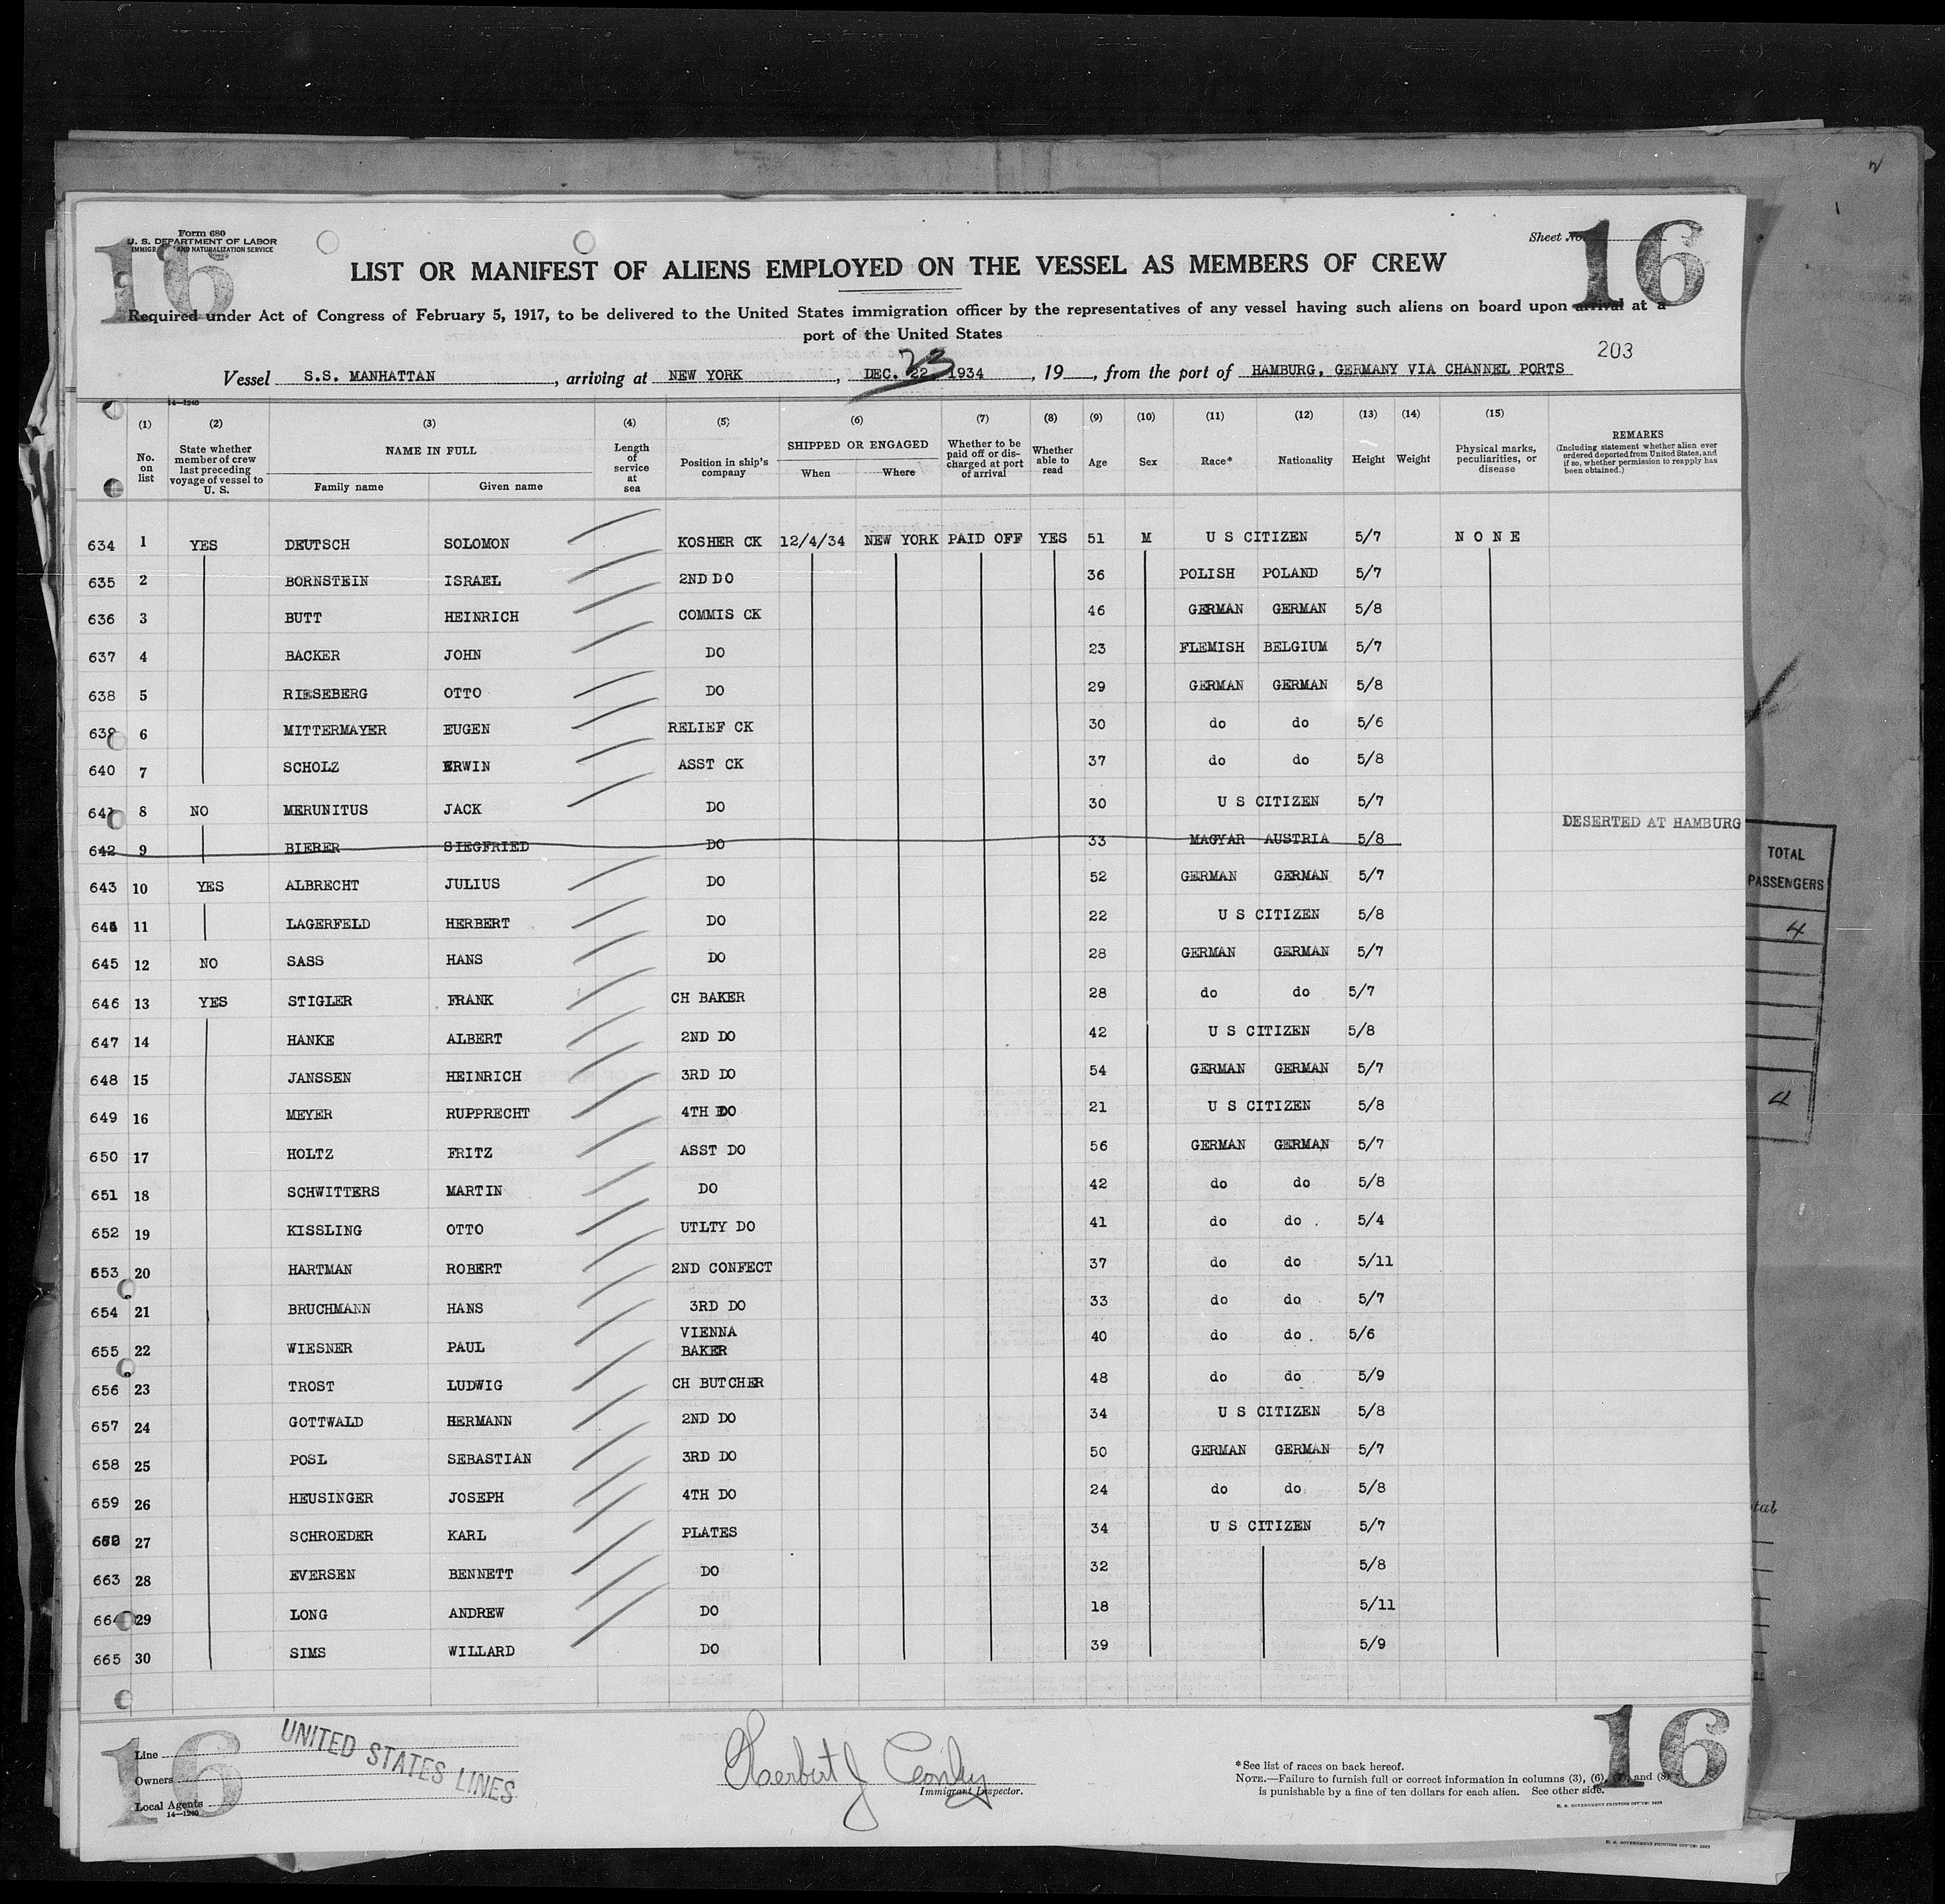 Form 680
U. S. DEPARTMENT OF LABOR
IMMIGRATION AND NATURALIZATION SERVICE
16
Sheet No.
16
LIST OR MANIFEST OF ALIENS EMPLOYED ON THE VESSEL AS MEMBERS OF CREW
Required under Act of Congress of February 5, 1917, to be delivered to the United States immigration officer by the representatives of any vessel having such aliens on board upon arrival at a
port of the United States
203
23
Vessel S.S. MANHATTAN, arriving at NEW YORK, DEC. 22, 1934, 19, from the port of HAMBURG, GERMANY VIA CHANNEL PORTS
14—1240
(1) (2) (3) (4) (5) (6) (7) (8) (9) (10) (11) (12) (13) (14) (15)
No. on list State whether member of crew last preceding voyage of vessel to U. S. NAME IN FULL Family name Given name Length of service at sea Position in ship's company SHIPPED OR ENGAGED When Where Whether to be paid off or discharged at port of arrival Whether able to read Age Sex Race* Nationality Height Weight Physical marks, peculiarities, or disease REMARKS (Including statement whether alien ever ordered deported from United States, and if so, whether permission to reapply has been obtained.)
634 1 YES DEUTSCH SOLOMON KOSHER CK 12/4/34 NEW YORK PAID OFF YES 51 M U S CITIZEN 5/7 NONE
635 2 BORNSTEIN ISRAEL 2ND DO 36 POLISH POLAND 5/7
636 3 BUTT HEINRICH COMMIS CK 46 GERMAN GERMAN 5/8
637 4 BACKER JOHN DO 23 FLEMISH BELGIUM 5/7
638 5 RIESEBERG OTTO DO 29 GERMAN GERMAN 5/8
639 6 MITTERMAYER EUGEN RELIEF CK 30 do do 5/6
640 7 SCHOLZ ERWIN ASST CK 37 do do 5/8
641 8 NO MERUNITUS JACK DO 30 U S CITIZEN 5/7
642 9 BIERER SIEGFRIED DO 33 MAGYAR AUSTRIA 5/8 DESERTED AT HAMBURG
643 10 YES ALBRECHT JULIUS DO 52 GERMAN GERMAN 5/7
644 11 LAGERFELD HERBERT DO 22 U S CITIZEN 5/8
645 12 NO SASS HANS DO 28 GERMAN GERMAN 5/7
646 13 YES STIGLER FRANK CH BAKER 28 do do 5/7
647 14 HANKE ALBERT 2ND DO 42 U S CITIZEN 5/8
648 15 JANSSEN HEINRICH 3RD DO 54 GERMAN GERMAN 5/7
649 16 MEYER RUPPRECHT 4TH DO 21 U S CITIZEN 5/8
650 17 HOLTZ FRITZ ASST DO 56 GERMAN GERMAN 5/7
651 18 SCHWITTERS MARTIN DO 42 do do 5/8
652 19 KISSLING OTTO UTLTY DO 41 do do 5/4
653 20 HARTMAN ROBERT 2ND CONFECT 37 do do 5/11
654 21 BRUCHMANN HANS 3RD DO 33 do do 5/7
655 22 WIESNER PAUL VIENNA BAKER 40 do do 5/6
656 23 TROST LUDWIG CH BUTCHER 48 do do 5/9
657 24 GOTTWALD HERMANN 2ND DO 34 U S CITIZEN 5/8
658 25 POSL SEBASTIAN 3RD DO 50 GERMAN GERMAN 5/7
659 26 HEUSINGER JOSEPH 4TH DO 24 do do 5/8
27 SCHROEDER KARL PLATES 34 U S CITIZEN 5/7
663 28 EVERSEN BENNETT DO 32 5/8
664 29 LONG ANDREW DO 18 5/11
665 30 SIMS WILLARD DO 39 5/9
TOTAL
PASSENGERS
4
4
16
UNITED STATES LINES
Line
Owners
Local Agents
14—1240
Herbert J
Immigrant Inspector.
*See list of races on back hereof.
NOTE.—Failure to furnish full or correct information in columns (3), (6), (7), and (8)
is punishable by a fine of ten dollars for each alien. See other side.
16